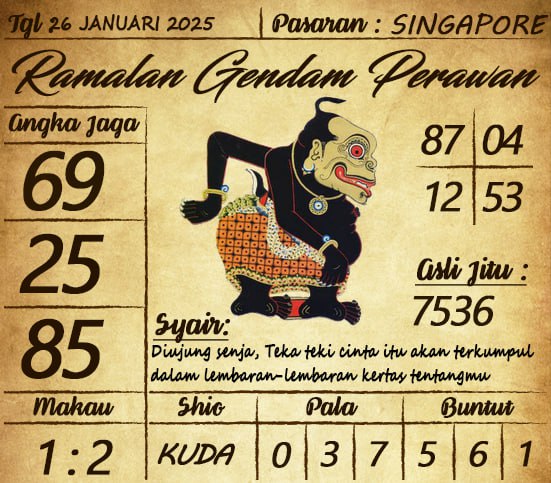 Tgl 26 JANUARI 2025 Pasaran : SINGAPORE
Ramalan Gendam Perawan
Angka Jaga
69
25
85
87 04
12 53
Asli Jitu :
7536
Syair:
Diujung senja, Teka teki cinta itu akan terkumpul
dalam lembaran-lembaran kertas tentangmu
Makau Shio Pala Buntut
1 : 2 KUDA 0 3 7 5 6 1